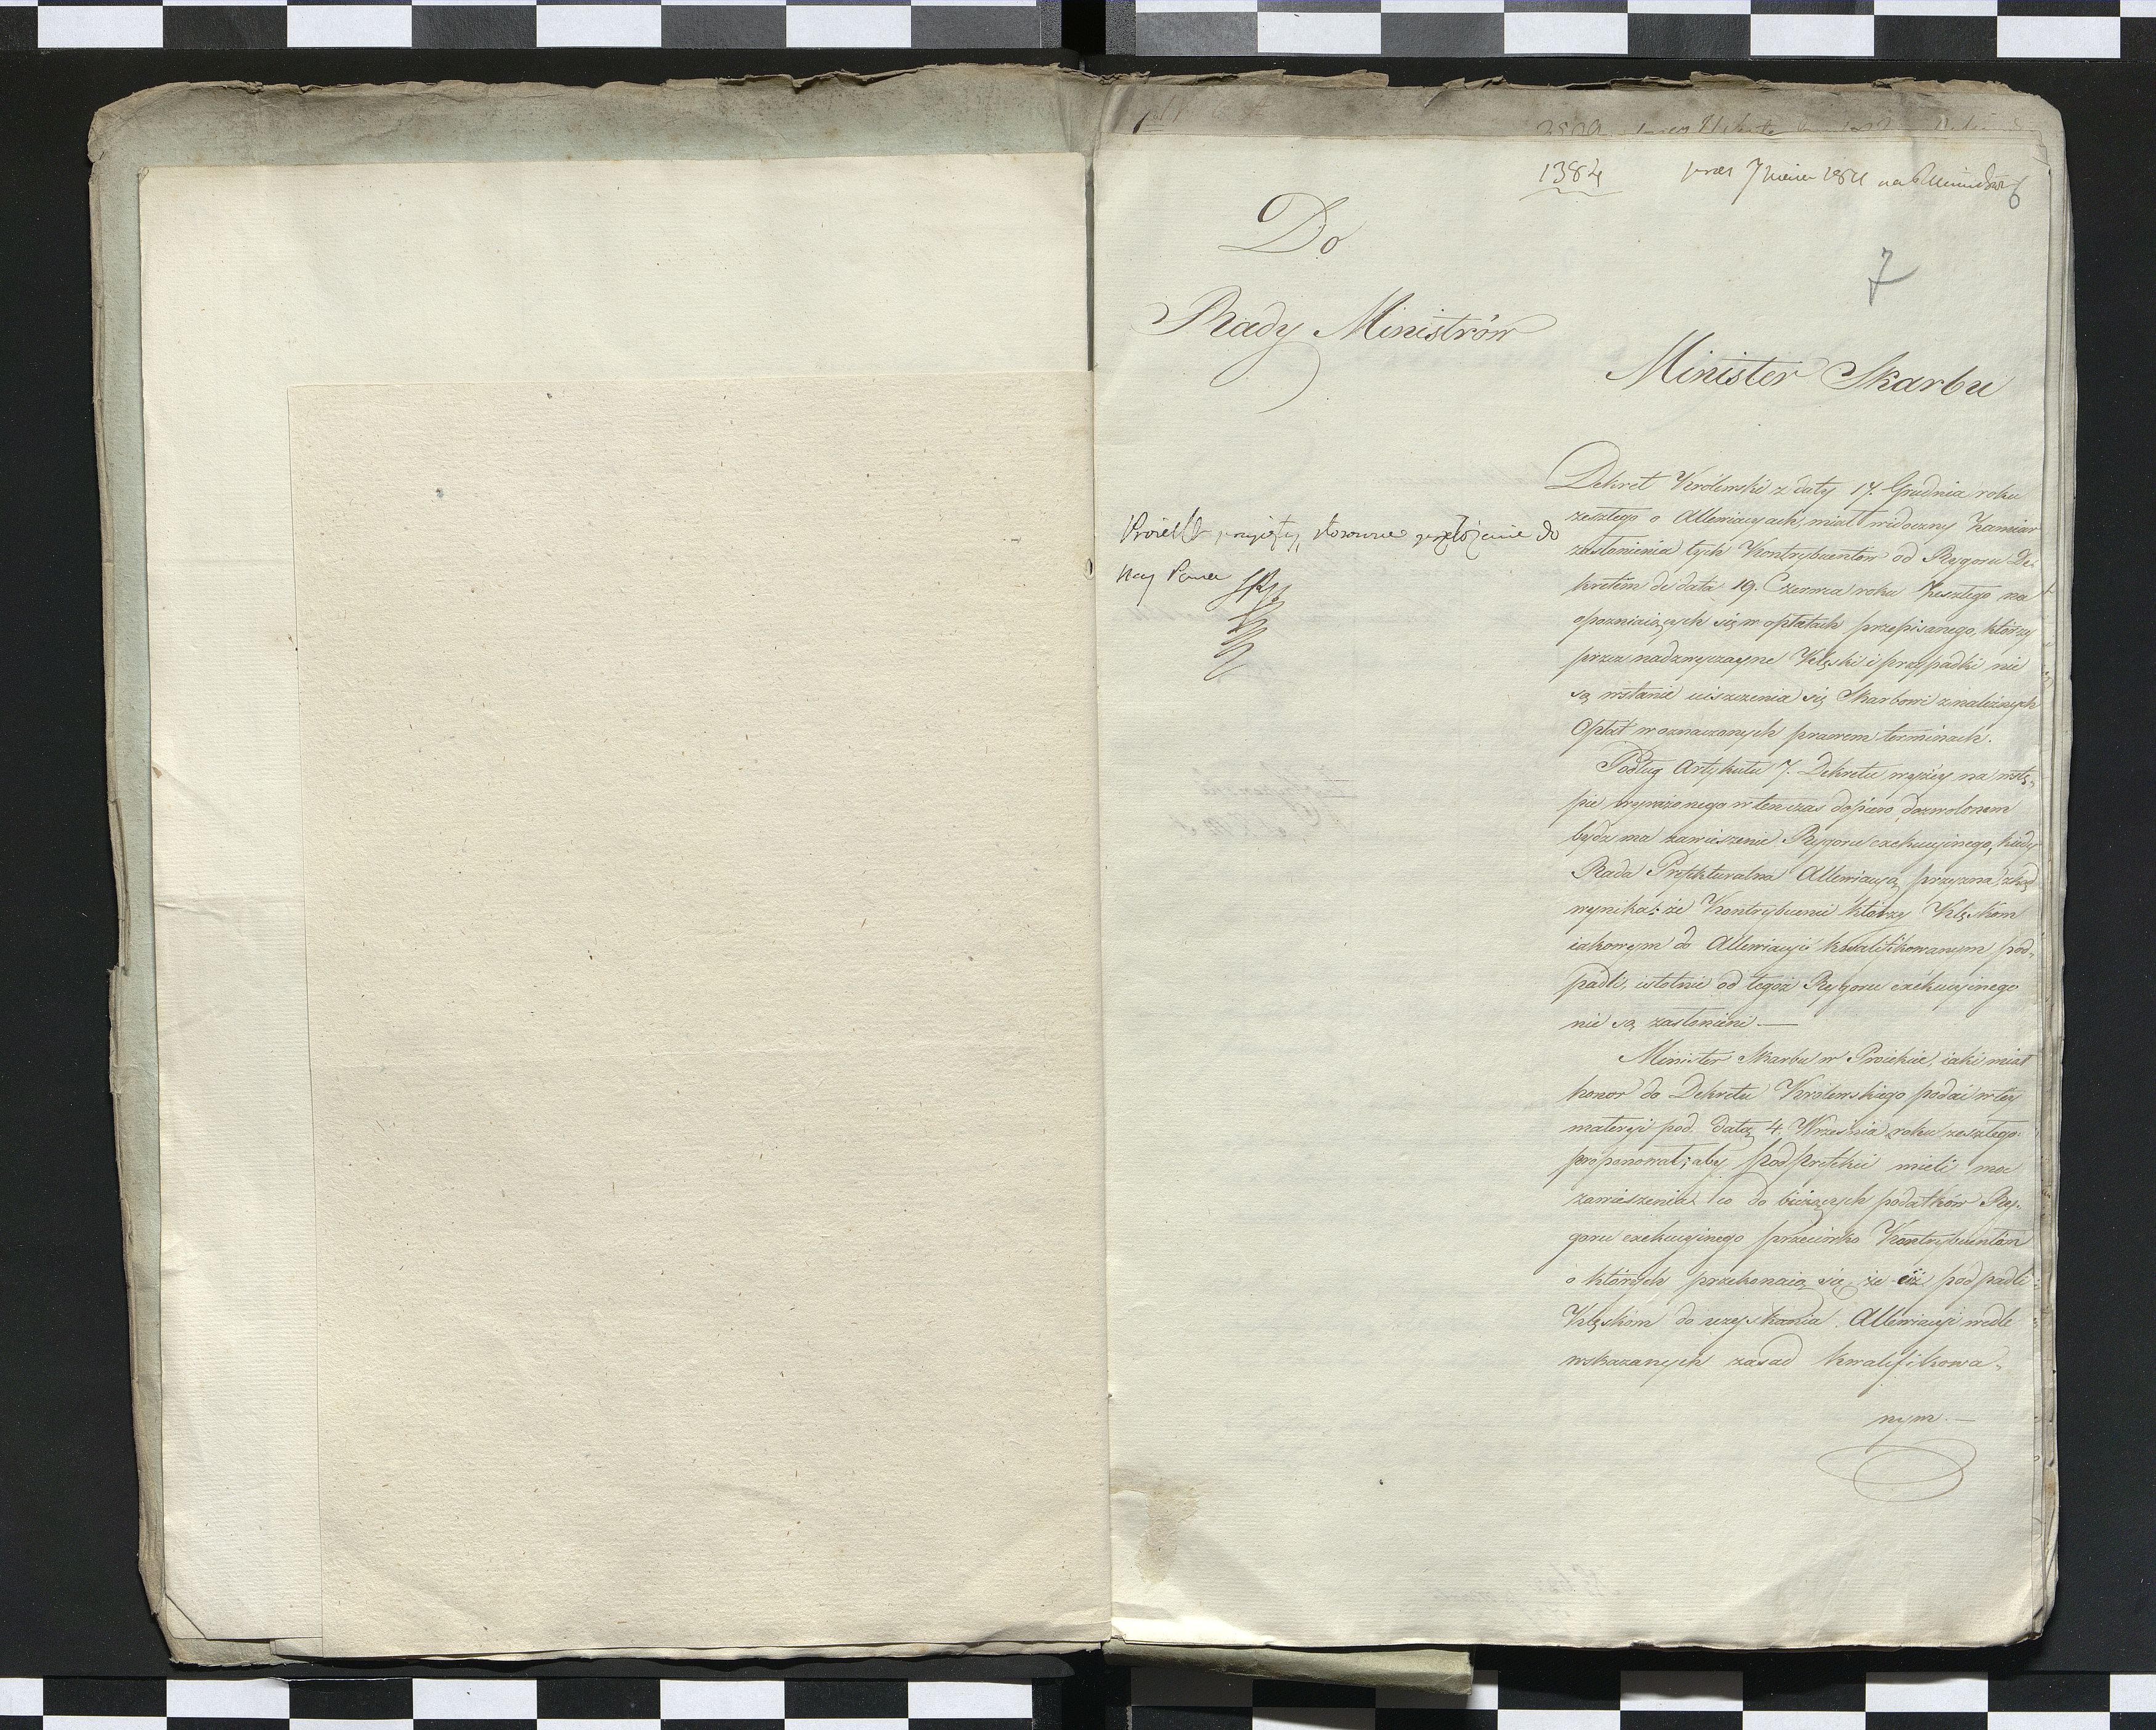 1384
7
Do
Rady Ministrów
Minister Skarbu
Proiekt przyięty, stosowne przełożenie do
Nay Pana
Dekret Królewski z daty 17. Grudnia roku
zeszłego o Allewiacyach, miał widoczny Zamiar
zasłonienia tych Kontrybuentów od Rygoru De-
kretem de data 19. Czerwca roku Zeszłego na
opozniaiących się w opłatach przepisanego, którzy
przez nadzwyczayne Klęski i przypadki nie
są wstanie uiszczenia się Skarbowi z należnych
Opłat w oznaczonych prawem terminach.
Podług Artykułu 7. Dekretu wyżey na wstę-
pie wyrażonego w tenczas dopiero dozwolonem
bydź ma zawieszenie Rygoru exekucyinego, kiedy
Rada Prefekturalna Allewiacyą przyzna, zkąd
wynika: że Kontrybuenci którzy Klęskom
iakowym do Allewiacyi kwalifikowanym pod-
padli, istotnie od tegoż Rygoru exekucyinego
nie są zasłonieni —
Minister Skarbu w Proiekcie, iaki miał
honor do Dekretu Królewskiego podać w tey
materyi pod datą 4. Września roku zeszłego
proponował; aby Podprefekci mieli moc
zawieszenia co do bieżących podatków Ry-
goru exekucyinego przeciwko Kontrybuentom
o których przekonaią się, że iż podpadli
Klęskom do uzyskania Allewiacyi wedle
wskazanych zasad kwalifikowa-
nym. —